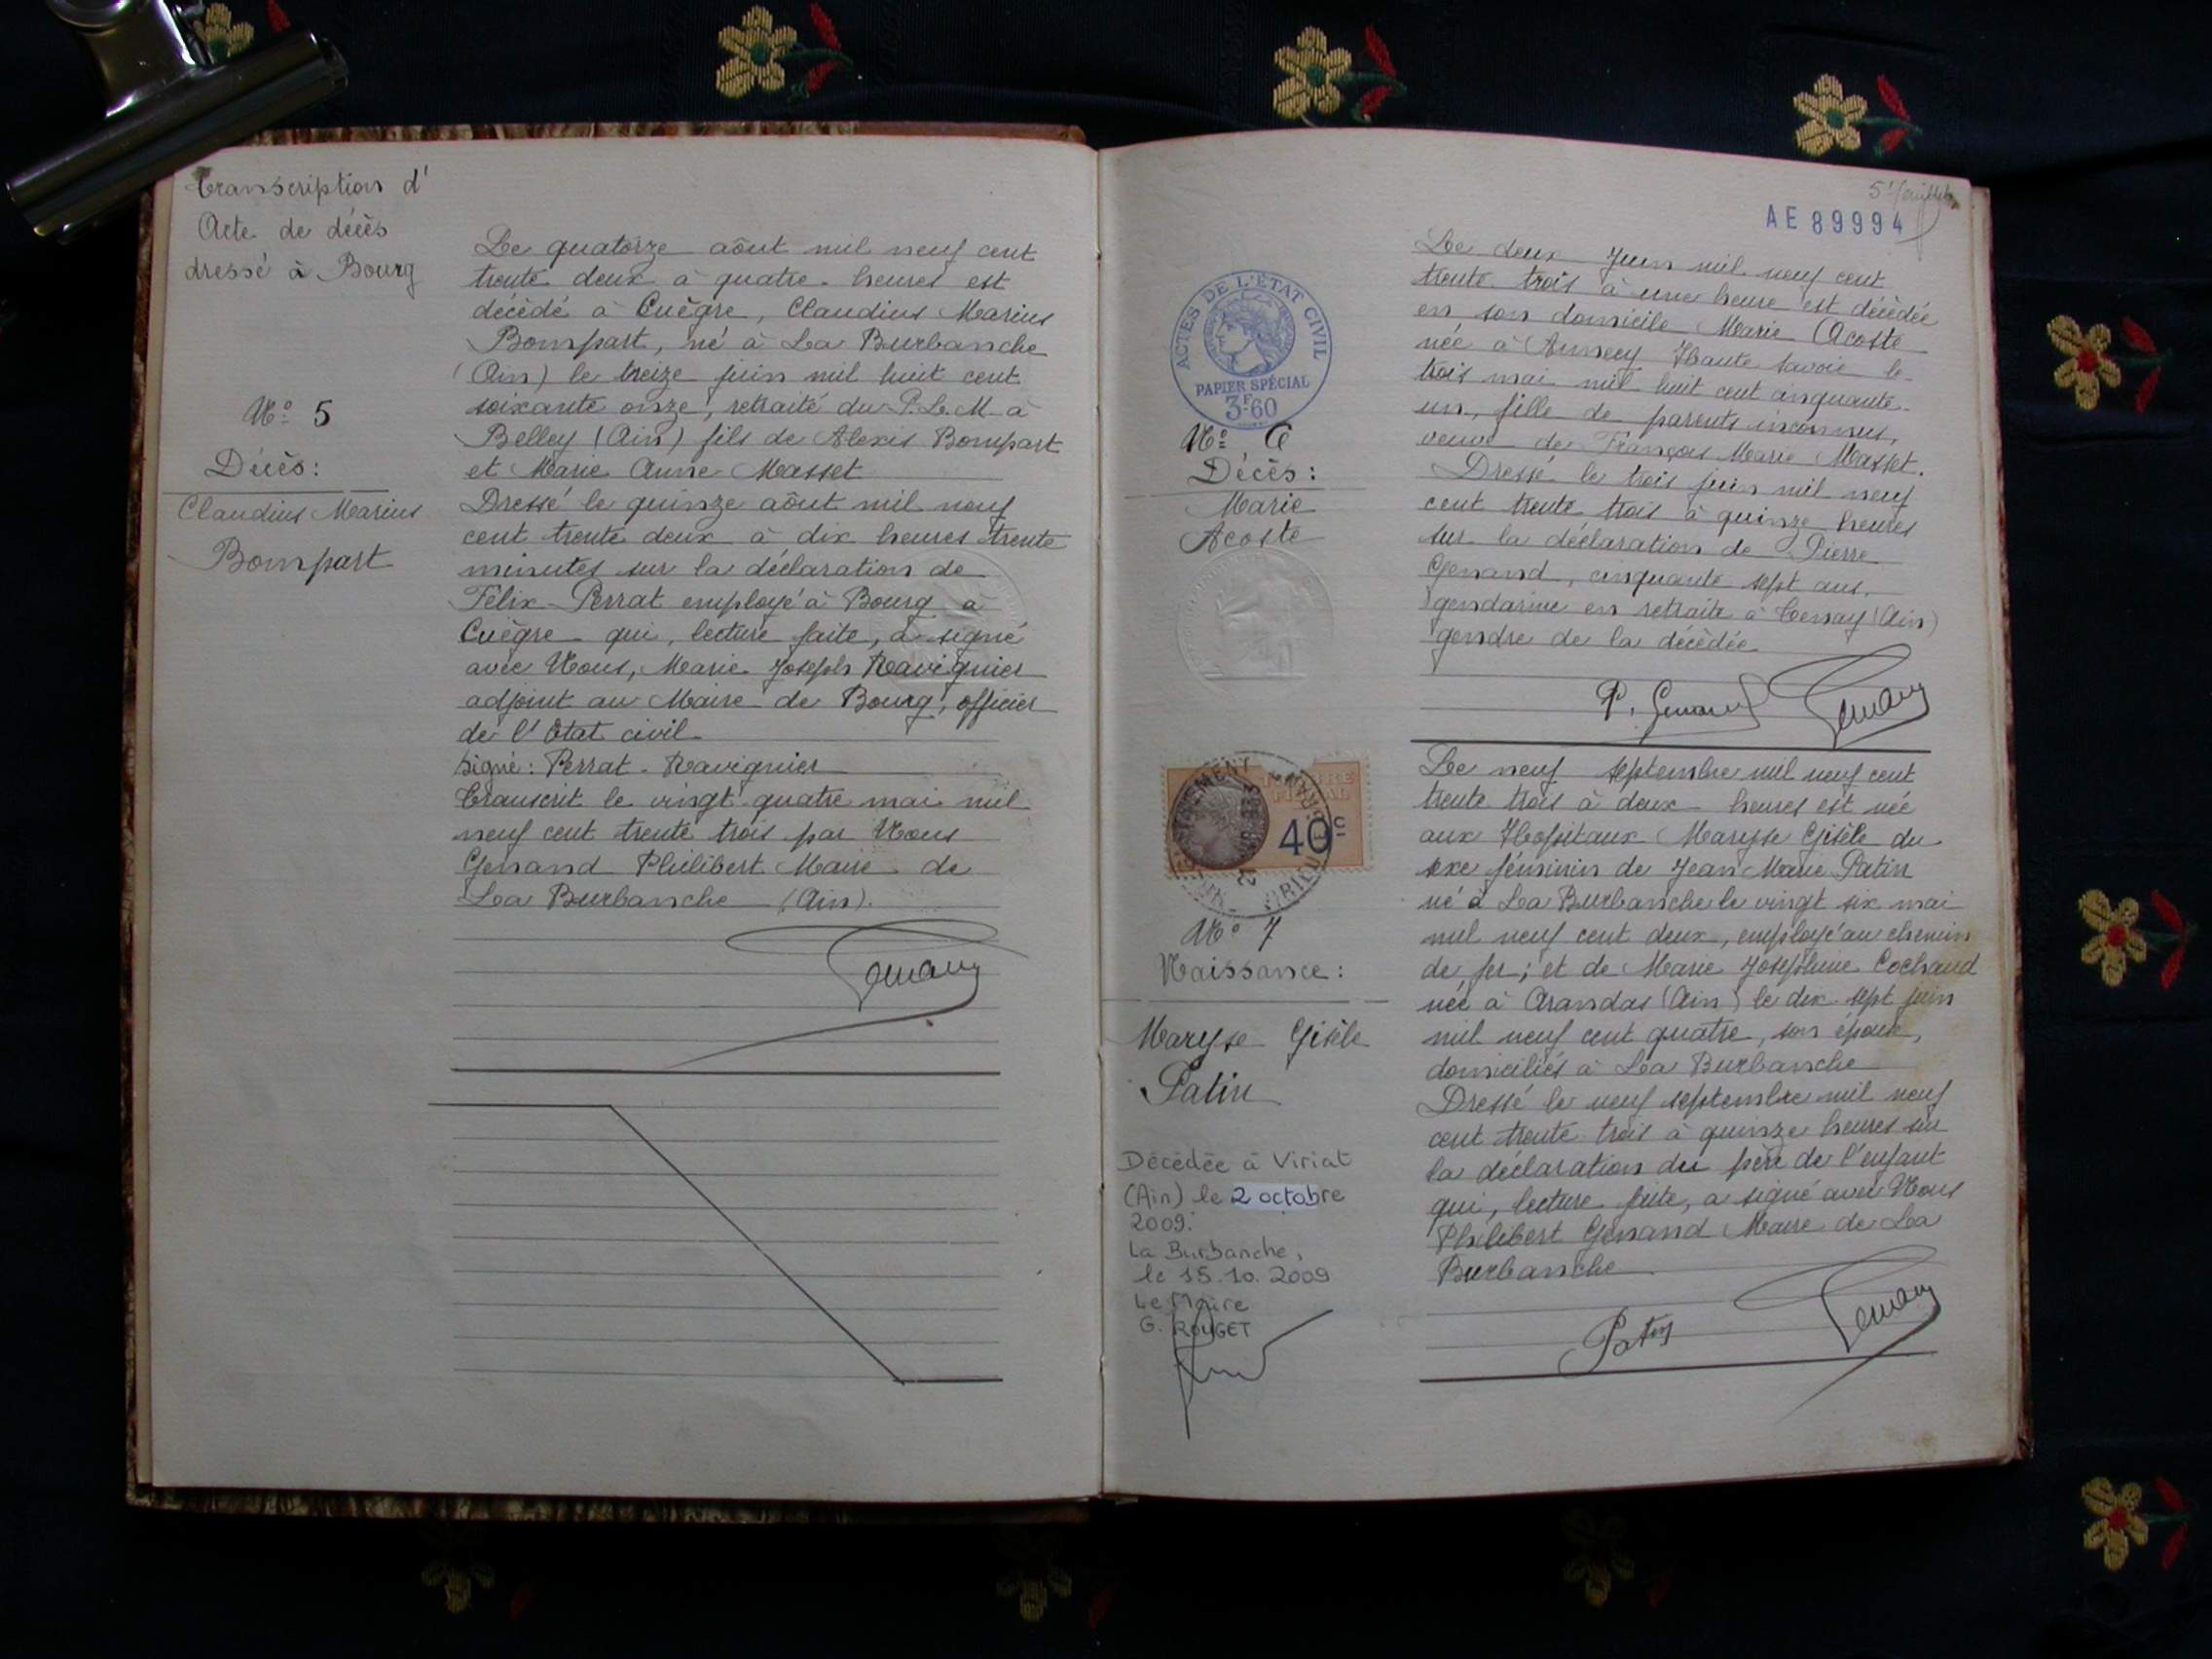 Transcription d'
Acte de décès
dressé à Bourg
N° 5
Décès:
Claudius Marius
Bompart
Le quatorze aôut mil neuf cent
trente deux à quatre heures est
décédé à Cuègre, Claudius Marius
Bompart, né à La Burbanche
(Ain) le treize juin mil huit cent
soixante onze, retraité du P.L.M. à
Belley (Ain) fils de Alexis Bompart
et Marie Anne Masset
Dressé le quinze aôut mil neuf
cent trente deux à dix heures trente
minutes sur la déclaration de
Félix Perrat employé à Bourg à
Cuègre qui, lecture faite, a signé
avec Nous, Marie Joseph Ravignier
adjoint au Maire de Bourg, officier
de l'Etat civil
Signé: Perrat - Ravignier
Transcrit le vingt quatre mai mil
neuf cent trente trois par Nous
Genand Philibert Maire de
La Burbanche (Ain).
5e feuillet
AE 89994
ACTES DE L'ÉTAT CIVIL
PAPIER SPÉCIAL
3F60
N° 6
Décès:
Marie
Acoste
Le deux Juin mil neuf cent
trente trois à une heure est décédée
en son domicile Marie Acoste
née à Annecy Haute Savoie le
trois mai mil huit cent cinquante
un, fille de parents inconnus,
veuve de François Marie Masset.
Dressé le trois juin mil neuf
cent trente trois à quinze heures
sur la déclaration de Pierre
Genand, cinquante sept ans,
gendarme en retraite à Tenay (Ain)
gendre de la décédée
P. Genand
TIMBRE
FISCAL
40c
N° 7
Naissance:
Maryse Gisèle
Patin
Le neuf septembre mil neuf cent
trente trois à deux heures est née
aux Hopitaux Maryse Gisèle du
sexe féminin de Jean Marie Patin
né à La Burbanche le vingt six mai
mil neuf cent deux, employé au chemin
de fer; et de Marie Joséphine Cochaud
née à Arandas (Ain) le dix sept juin
mil neuf cent quatre, son épouse,
domiciliés à La Burbanche
Dressé le neuf septembre mil neuf
cent trente trois à quinze heures sur
la déclaration du père de l'enfant
qui, lecture faite, a signé avec Nous
Philibert Genand Maire de La
Burbanche
Patin
Décédée à Viriat
(Ain) le 2 octobre
2009.
La Burbanche,
le 15.10.2009
Le Maire
G. ROUGET